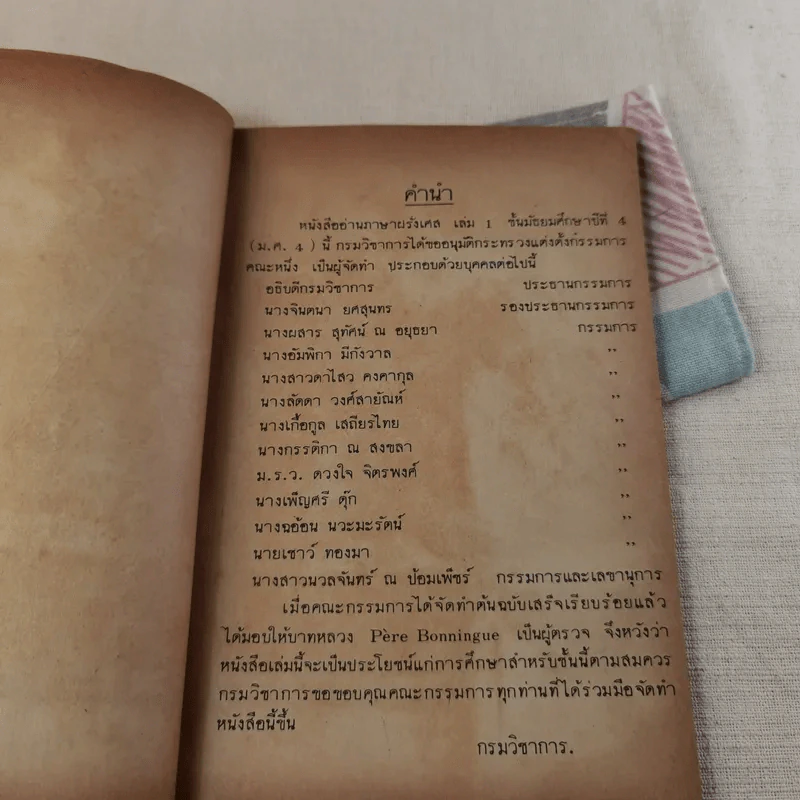 คำนำ
หนังสืออ่านภาษาฝรั่งเศส เล่ม 1 ชั้นมัธยมศึกษาปีที่ 4
(ม.ศ. 4) นี้ กรมวิชาการได้ขออนุมัติกระทรวงแต่งตั้งกรรมการ
คณะหนึ่ง เป็นผู้จัดทำ ประกอบด้วยบุคคลต่อไปนี้
อธิบดีกรมวิชาการ ประธานกรรมการ
นางจินตนา ยศสุนทร รองประธานกรรมการ
นางผสาร สุทัศน์ ณ อยุธยา กรรมการ
นางอัมพิกา มีกังวาล ,,
นางสาวดาไสว คงคากุล ,,
นางลัดดา วงศ์สายัณห์ ,,
นางเกื้อกูล เสถียรไทย ,,
นางกรรติกา ณ สงขลา ,,
ม.ร.ว. ดวงใจ จิตรพงศ์ ,,
นางเพ็ญศรี ตุ๊ก ,,
นางฉอ้อน นวะมะรัตน์ ,,
นายเชาว์ ทองมา ,,
นางสาวนวลจันทร์ ณ ป้อมเพ็ชร์ กรรมการและเลขานุการ
เมื่อคณะกรรมการได้จัดทำต้นฉบับเสร็จเรียบร้อยแล้ว
ได้มอบให้บาทหลวง Père Bonningue เป็นผู้ตรวจ จึงหวังว่า
หนังสือเล่มนี้จะเป็นประโยชน์แก่การศึกษาสำหรับชั้นนี้ตามสมควร
กรมวิชาการขอขอบคุณคณะกรรมการทุกท่านที่ได้ร่วมมือจัดทำ
หนังสือนี้ขึ้น
กรมวิชาการ.